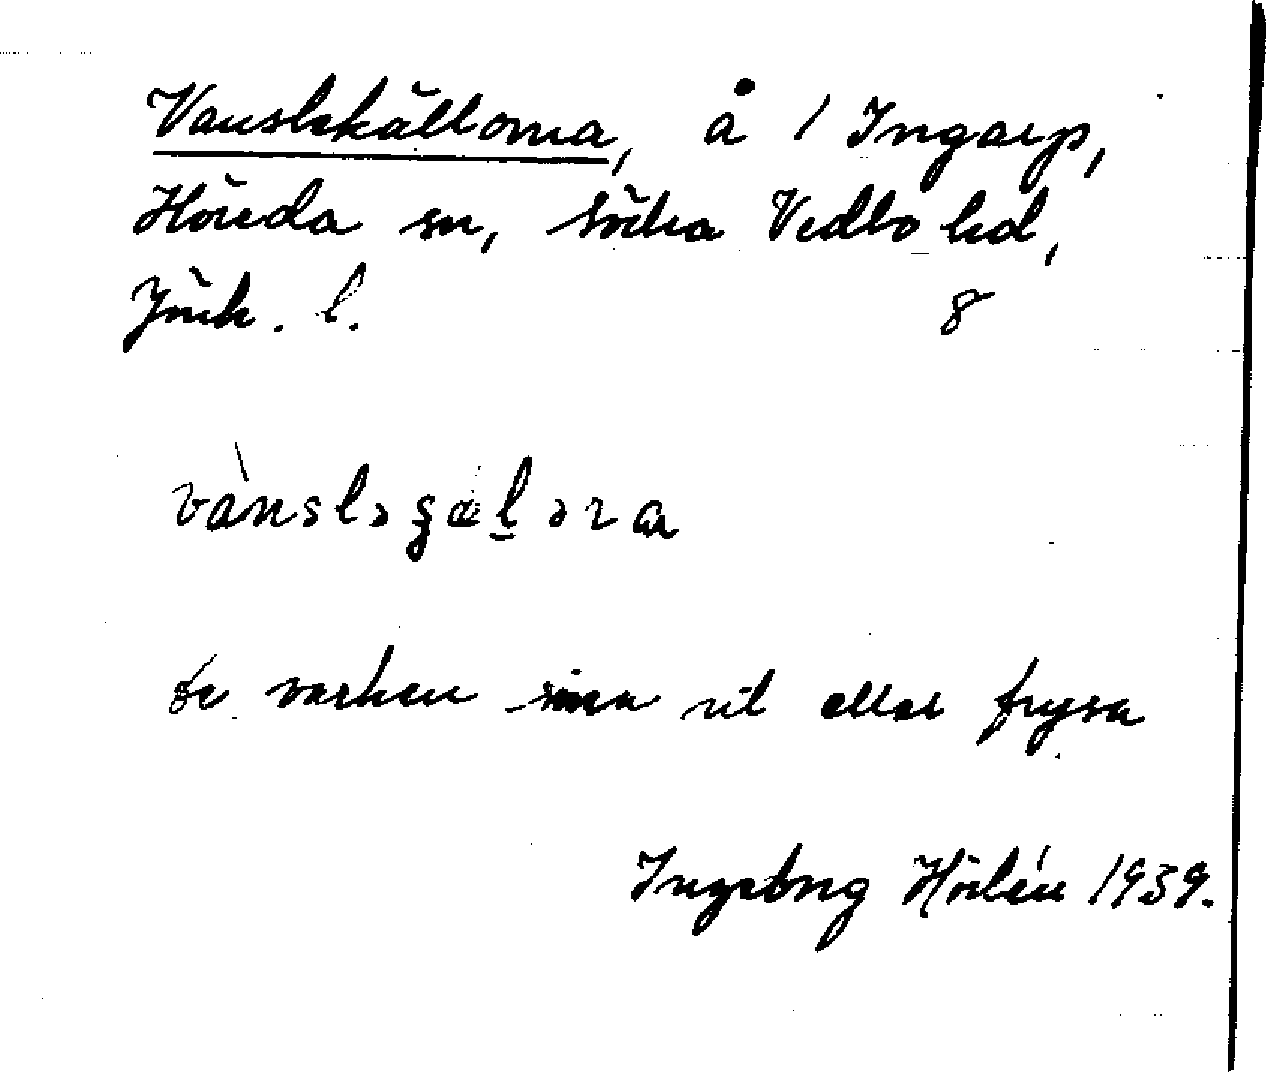 Vanslekällorna, å / Ingarp,
Höreda sn, Södra Vedbo hd,
Jönk. l. 8
vànsləʂæḻəra
de varken sina ut eller frysa
Ingeborg Hörlén 1939.